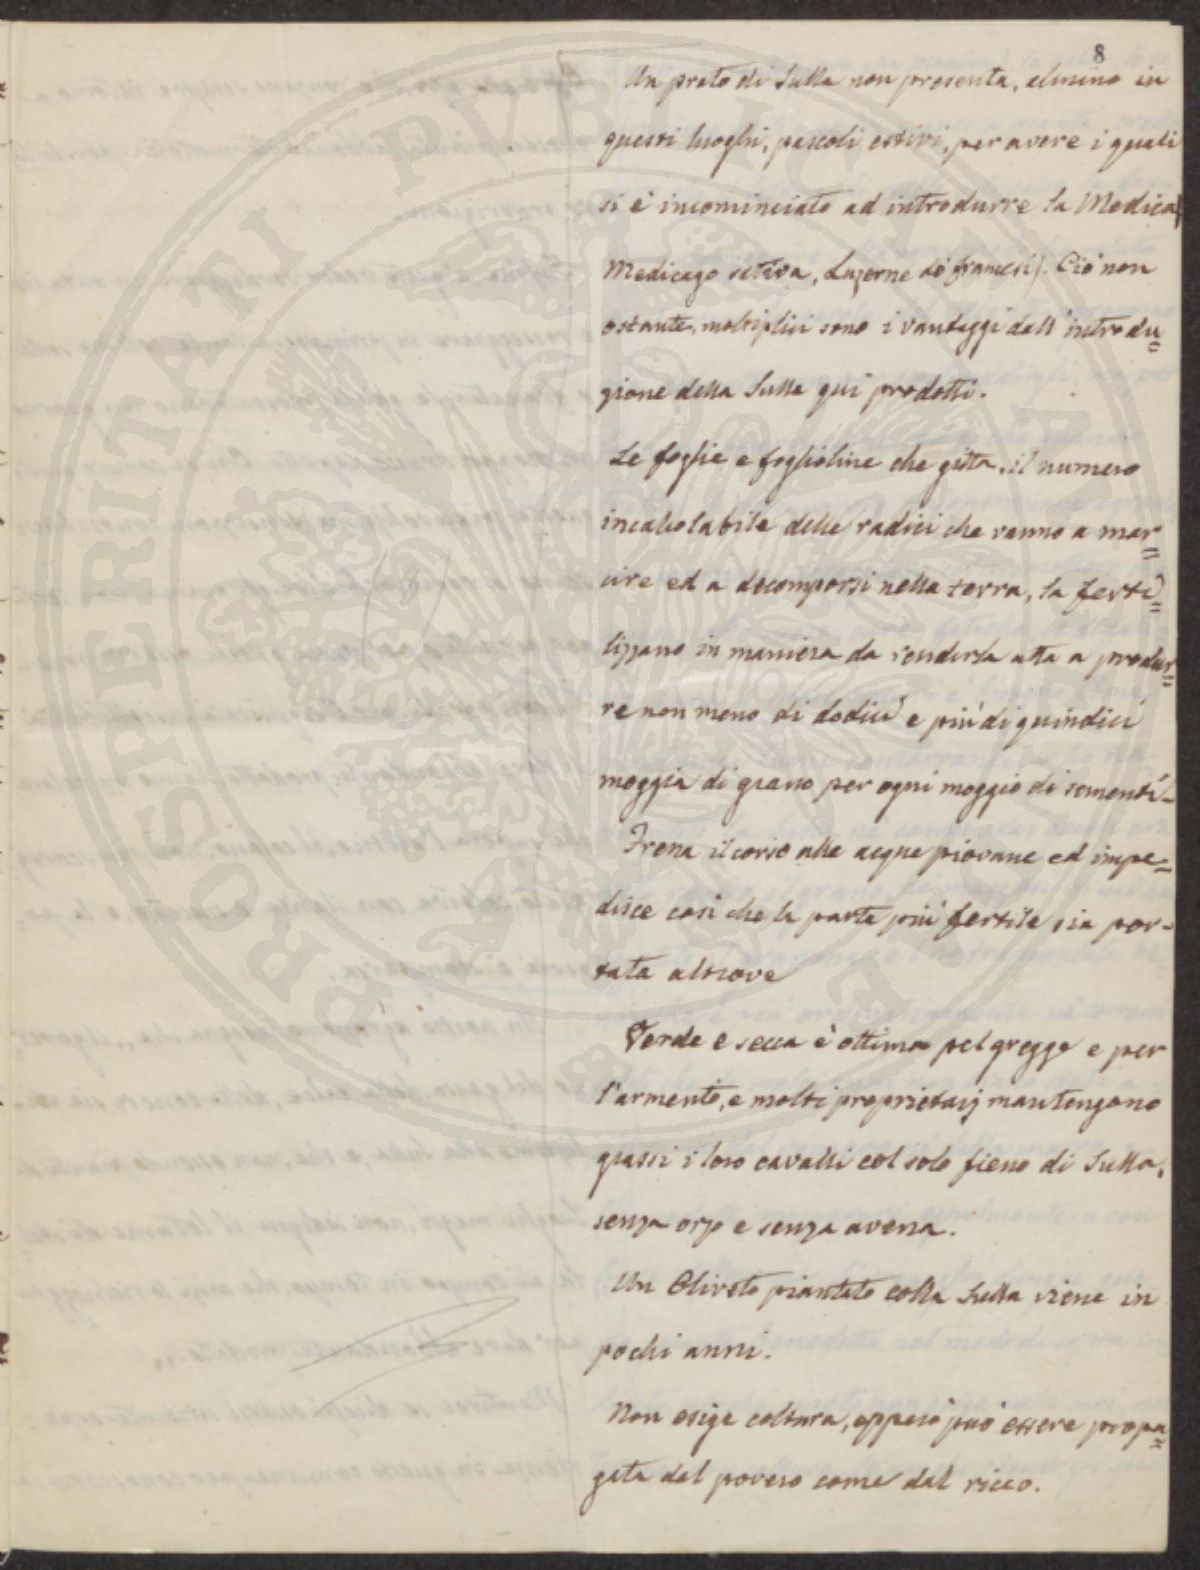 8
Un prato di Sulla non presenta, almeno in
questi luoghi, pascoli estivi, per avere i quali
si è incominciato ad introdurre la Medica
Medicago sativa, Luzerne de' francesi). Ciò non
ostante, moltiplici sono i vantaggi dall' introdu=
zione della Sulla qui prodotti.
Le foglie e foglioline che gitta, il numero
incalcolabile delle radici che vanno a mar=
cire ed a decomporsi nella terra, la ferti=
lizzano in maniera da renderla atta a produr=
re non meno di dodici e più di quindici
moggia di grano per ogni moggio di sementi-
Frena il corso alle acque piovane ed impe=
disce così che la parte più fertile sia por-
tata altrove
Verde e secca è ottima pel gregge e per
l'armento, e molti proprietarj mantengono
grassi i loro cavalli col solo fieno di Sulla,
senza orzo e senza avena.
Un Oliveto piantato colla Sulla viene in
pochi anni.
Non esige coltura, epperò può essere propa=
gata dal povero come dal ricco.
PROSPERITATI PVBLICAE